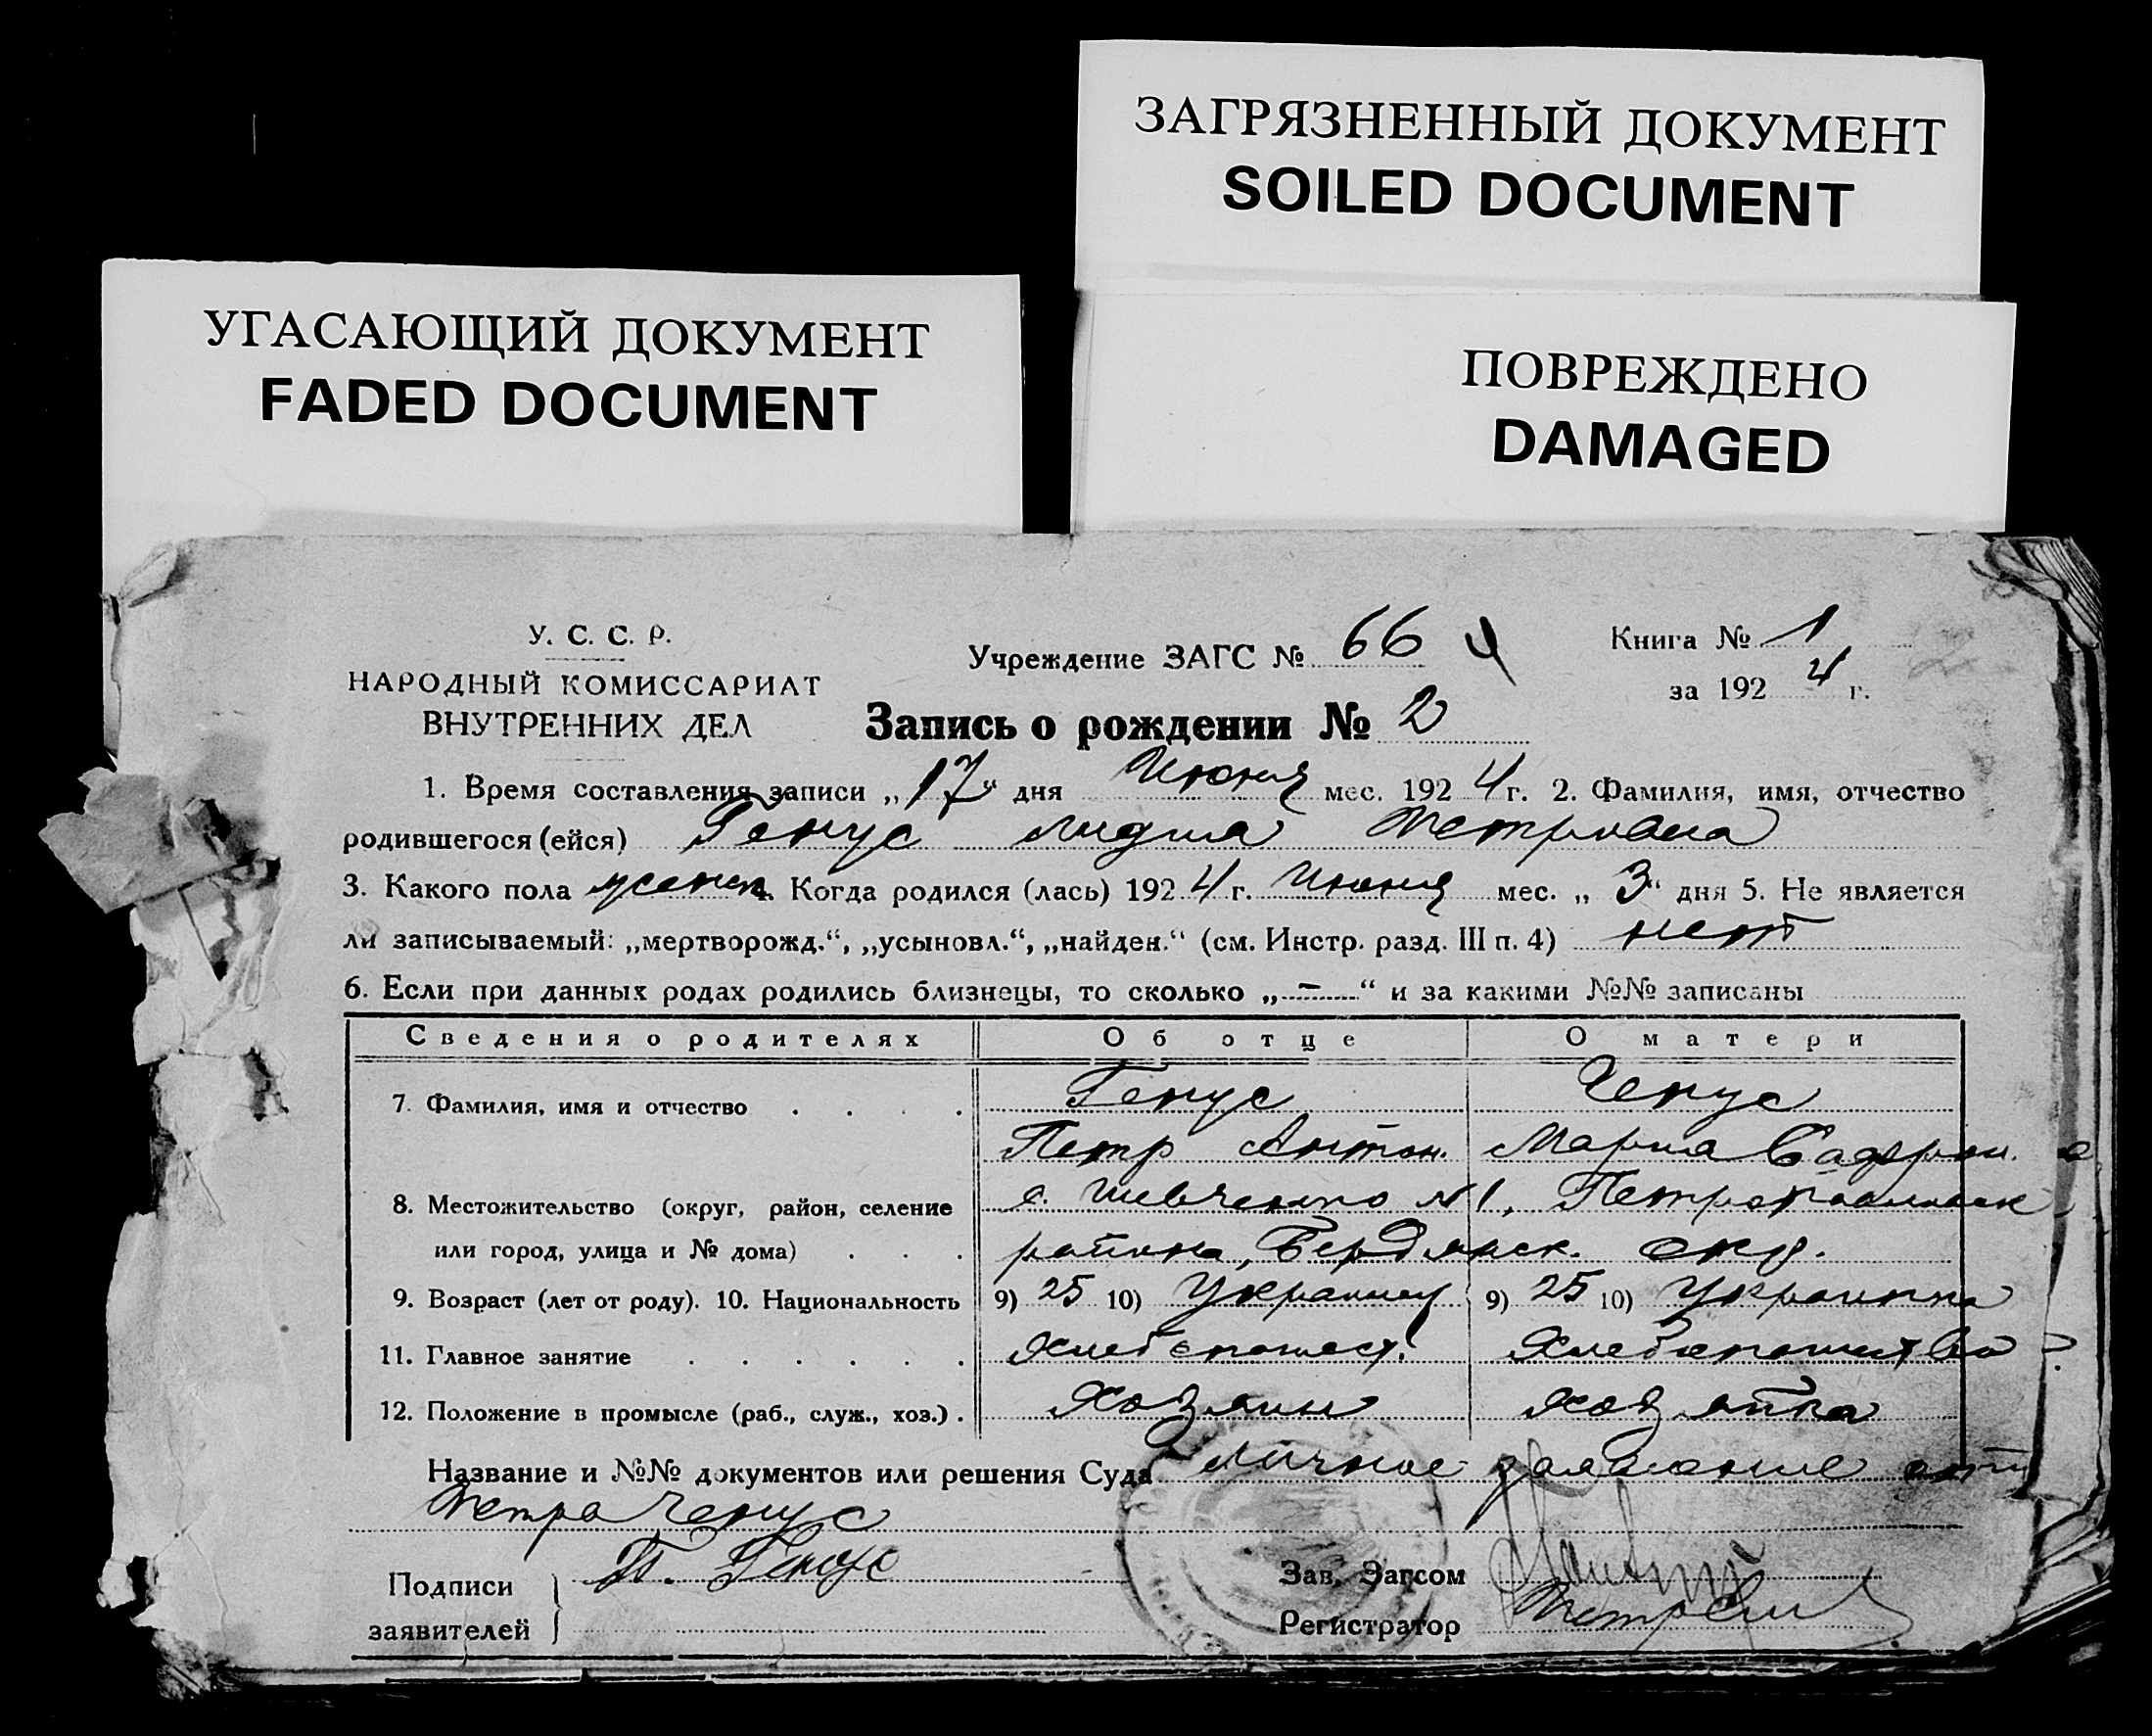 ЗАГРЯЗНЕННЫЙ ДОКУМЕНТ
SOILED DOCUMENT
УГАСАЮЩИЙ ДОКУМЕНТ
FADED DOCUMENT
ПОВРЕЖДЕНО
DAMAGED
У. С. С. Р.
НАРОДНЫЙ КОМИССАРИАТ
ВНУТРЕННИХ ДЕЛ
Учреждение ЗАГС № 66
Книга № 1
за 1924 г.
Запись о рождении № 2
1. Время составления записи „17“ дня Июня мес. 1924 г. 2. Фамилия, имя, отчество
родившегося (ейся) Генус Лидия Петровна
3. Какого пола женск. 4. Когда родился (лась) 1924 г. Июня мес. „3“ дня 5. Не является
ли записываемый: „мертворожд.“, „усыновл.“, „найден.“ (см. Инстр. разд. III п. 4) нет
6. Если при данных родах родились близнецы, то сколько „–“ и за какими №№ записаны
Сведения о родителях Об отце О матери
7. Фамилия, имя и отчество . . . . Генус Генус
Петр Антон. Мария
8. Местожительство (округ, район, селение с. Шевченко №1, Петропавловск
или город, улица и № дома) . . . района, Бердянск. окр.
9. Возраст (лет от роду). 10. Национальность 9) 25 10) Украинец 9) 25 10) Украинка
11. Главное занятие . . . . . . Хлебопашест. Хлебопашество
12. Положение в промысле (раб., служ., хоз.) . Хозяин Хозяйка
Название и №№ документов или решения Суда Личное заявление
Петра Генус
Подписи П. Генус
заявителей
Зав. Загсом
Регистратор